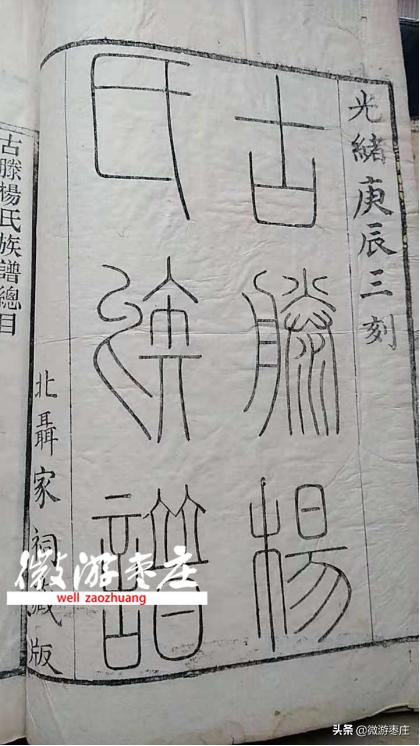 光緒庚辰三刻
古滕楊
氏族譜
北聶家祠藏版
古滕楊氏族譜總目
微游枣庄
well zaozhuang
头条 @微游枣庄